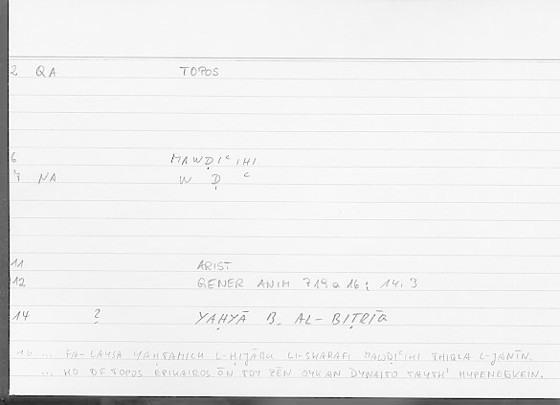 2 QA TOPOS
6 MAWḌIᶜIHI
7 NA W Ḍ ᶜ
11 ARIST
12 GENER ANIM 719 a 16; 14.3
14 ? YAḤYĀ B. AL-BIṬRĪQ
16 ... FA-LAYSA L-ḤIJĀBU LI-SHARAFI MAWḌIᶜIHI THIQLA L-JANĪN.
... HO DE TOPOS EPIKAIROS ŌN TOY ZĒN OYK AN DYNAITO TAYTH' HYPENEGKEIN.